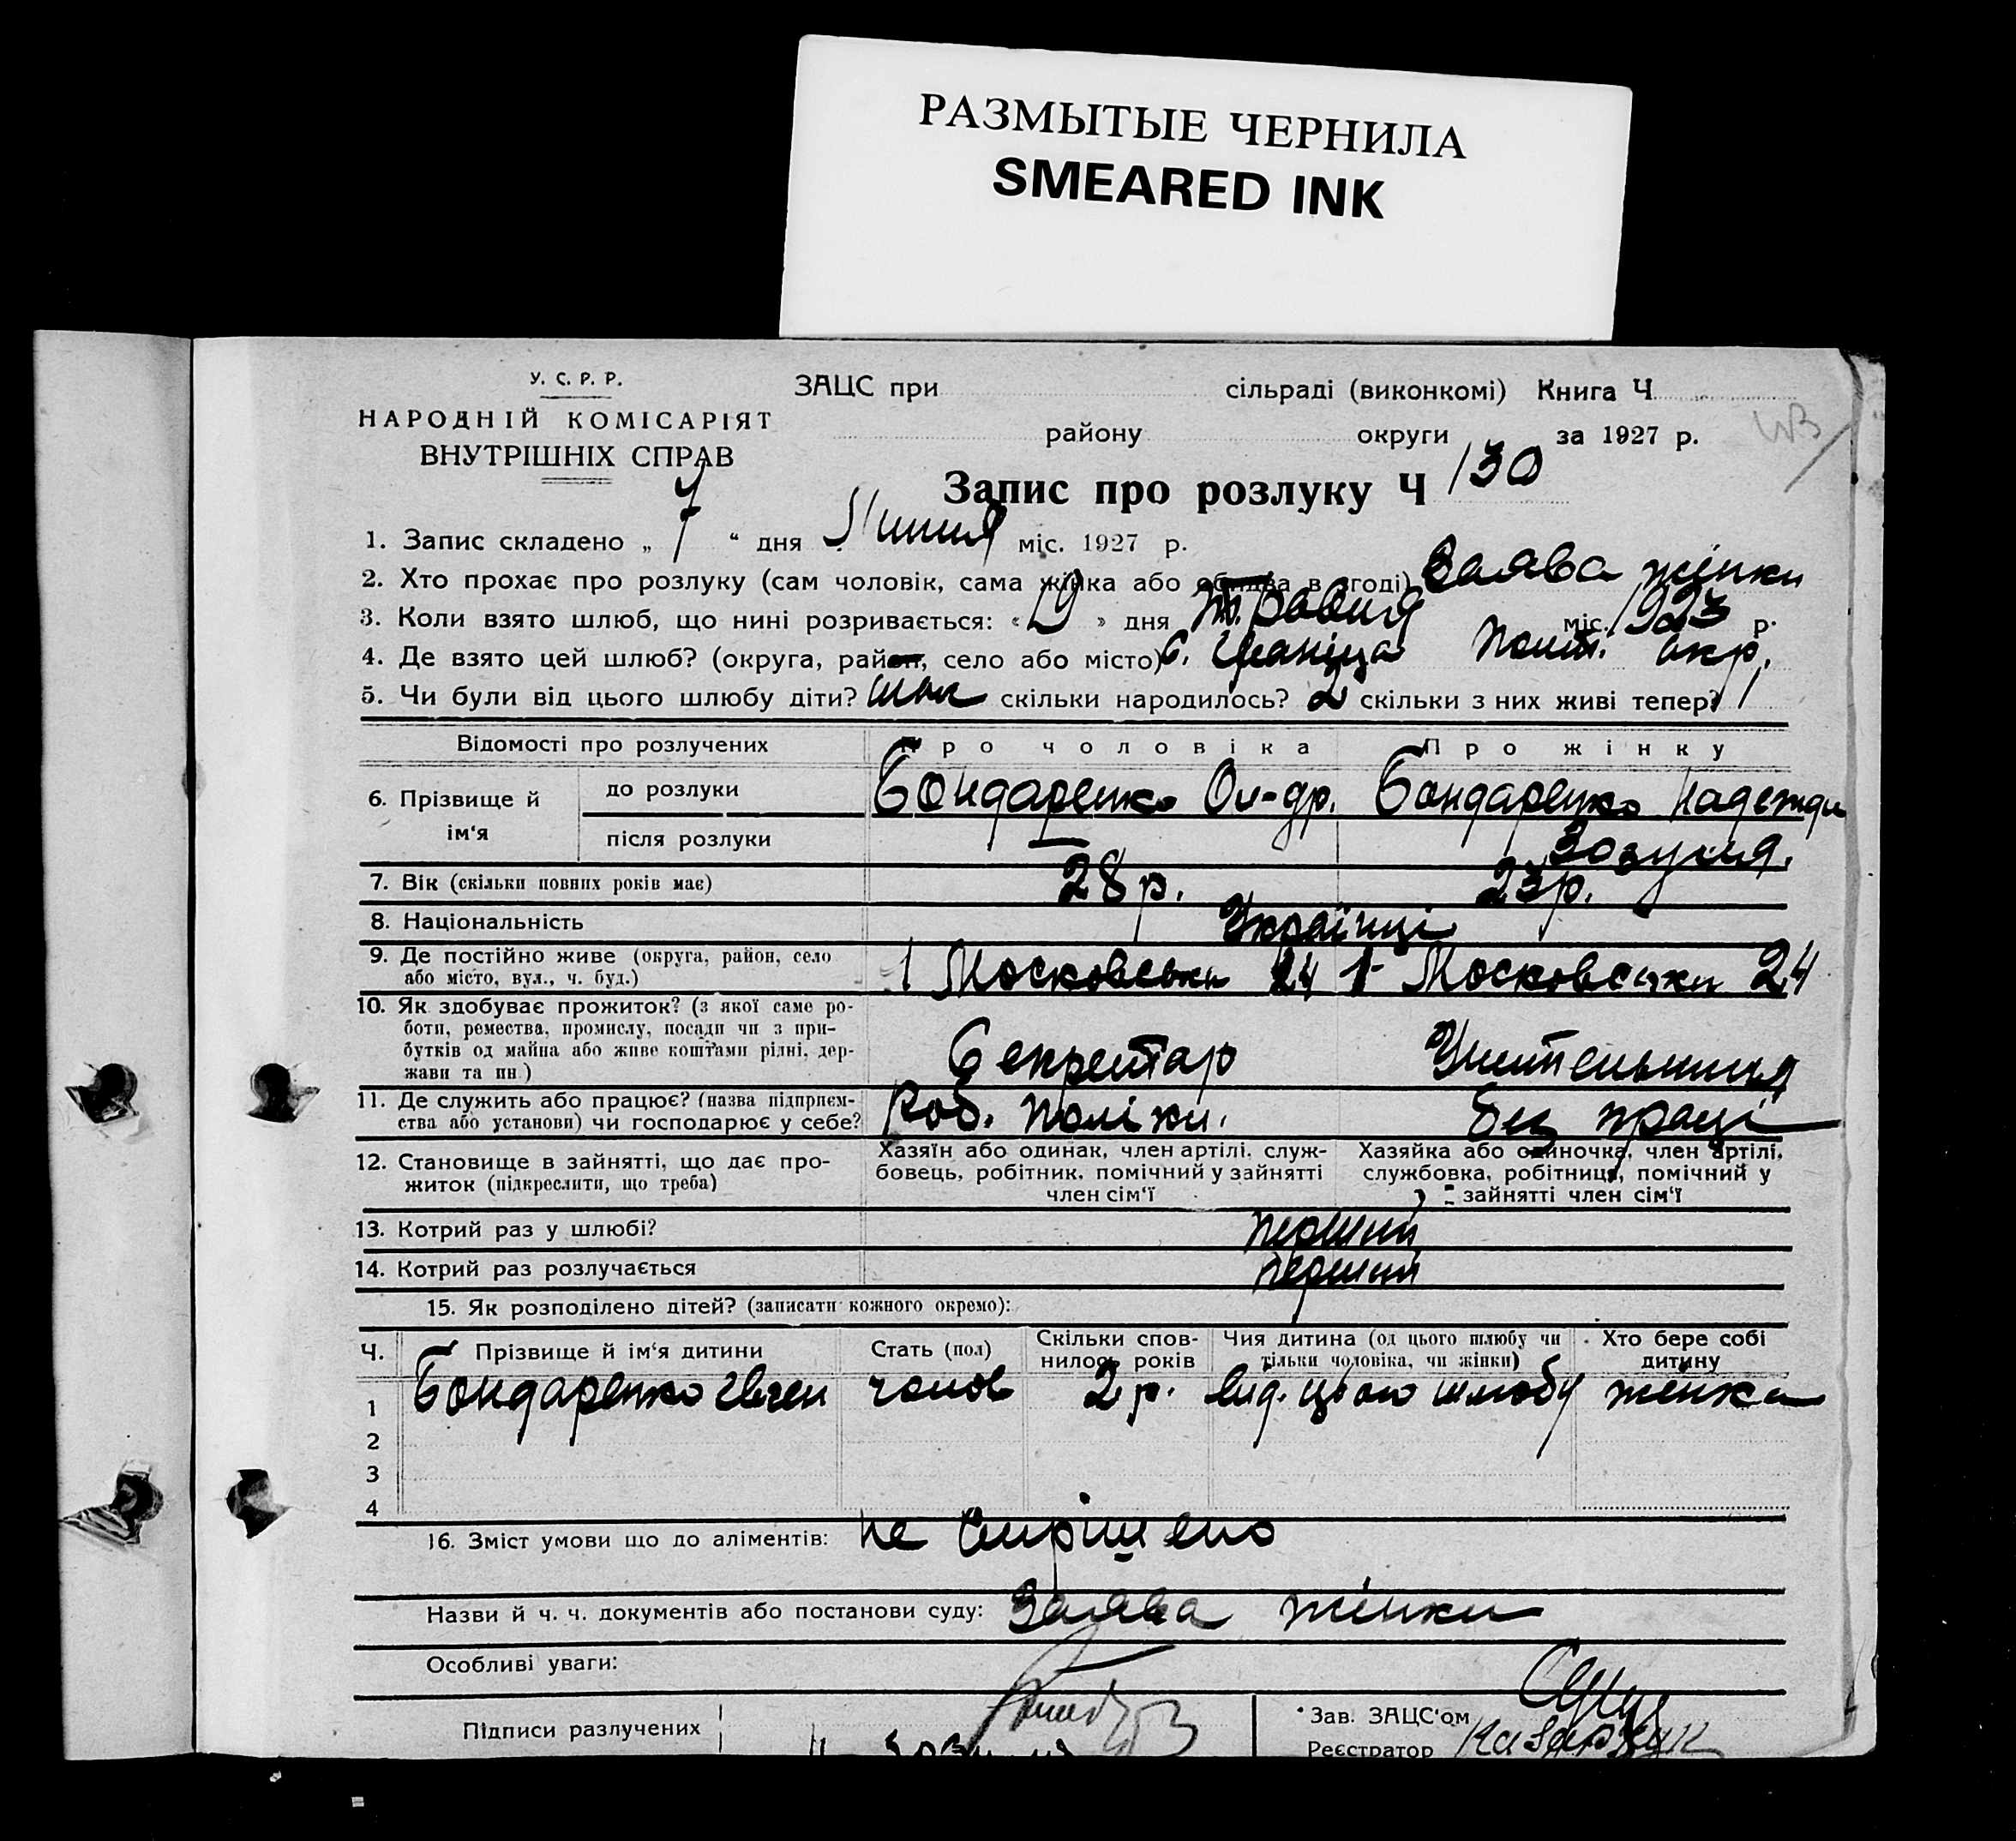 РАЗМЫТЫЕ ЧЕРНИЛА
SMEARED INK
У. С. Р. Р.
НАРОДНІЙ КОМІСАРІЯТ
ВНУТРІШНІХ СПРАВ
ЗАЦС при сільраді (виконкомі) Книга Ч
району округи за 1927 р.
Запис про розлуку Ч 130
1. Запис складено „ 7 “ дня Липня міс. 1927 р.
2. Хто прохає про розлуку (сам чоловік, сама жінка або обидва в згоді) Заява жінки
3. Коли взято шлюб, що нині розривається: « » дня Травня міс. 1923 р.
4. Де взято цей шлюб? (округа, район, село або місто) с. Полт. окр.
5. Чи були від цього шлюбу діти? так скільки народилось? 2 скільки з них живі тепер? 1
Відомості про розлучених Про чоловіка Про жінку
6. Прізвище й ім‘я до розлуки Бондаренко Ол-др. Бондаренко Надежда
після розлуки — Зозуля.
7. Вік (скільки повних років має) 28 р. 23 р.
8. Національність Українці
9. Де постійно живе (округа, район, село або місто, вул., ч. буд.) 1 Московська 24 1 Московська 24
10. Як здобуває прожиток? (з якої саме ро-
боти, ремества, промислу, посади чи з при-
бутків од майна або живе коштами рідні, дер-
жави та ин.) Секретар Учительниця
11. Де служить або працює? (назва підприєм-
ства або установи) чи господарює у себе? Роб. без праці
12. Становище в зайнятті, що дає про-
житок (підкреслити, що треба)
Хазяїн або одинак, член артілі, служ-
бовець, робітник, помічний у зайнятті
член сім‘ї
Хазяйка або одиночка, член артілі,
службовка, робітниця, помічний у
зайнятті член сім‘ї
13. Котрий раз у шлюбі? перший
14. Котрий раз розлучається перший
15. Як розподілено дітей? (записати кожного окремо):
Ч. Прізвище й ім‘я дитини Стать (пол) Скільки спов-
нилось років Чия дитина (од цього шлюбу чи
тільки чоловіка, чи жінки) Хто бере собі
дитину
1 Бондаренко Євген чолов 2 р. від. цього шлюбу жінка
2
3
4
16. Зміст умови що до аліментів: не вирішено
Назви й ч. ч. документів або постанови суду: Заява жінки
Особливі уваги:
Підписи разлучених
Зав. ЗАЦС‘ом
Реєстратор